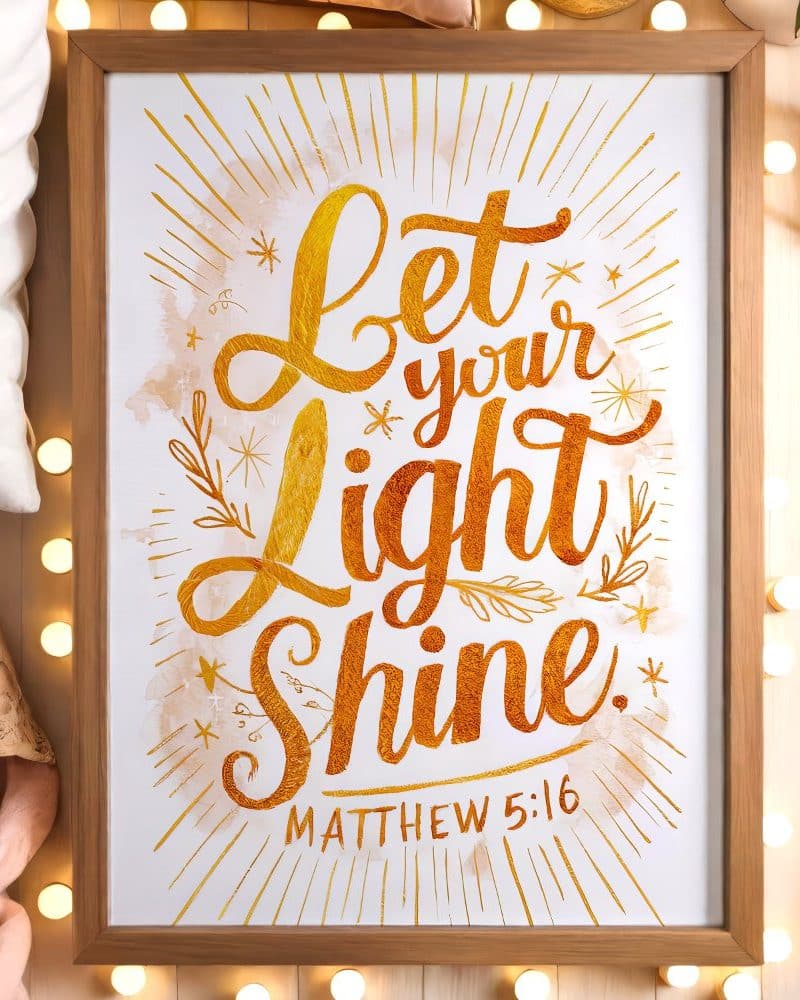 Let
your
Light
Shine.
MATTHEW 5:16